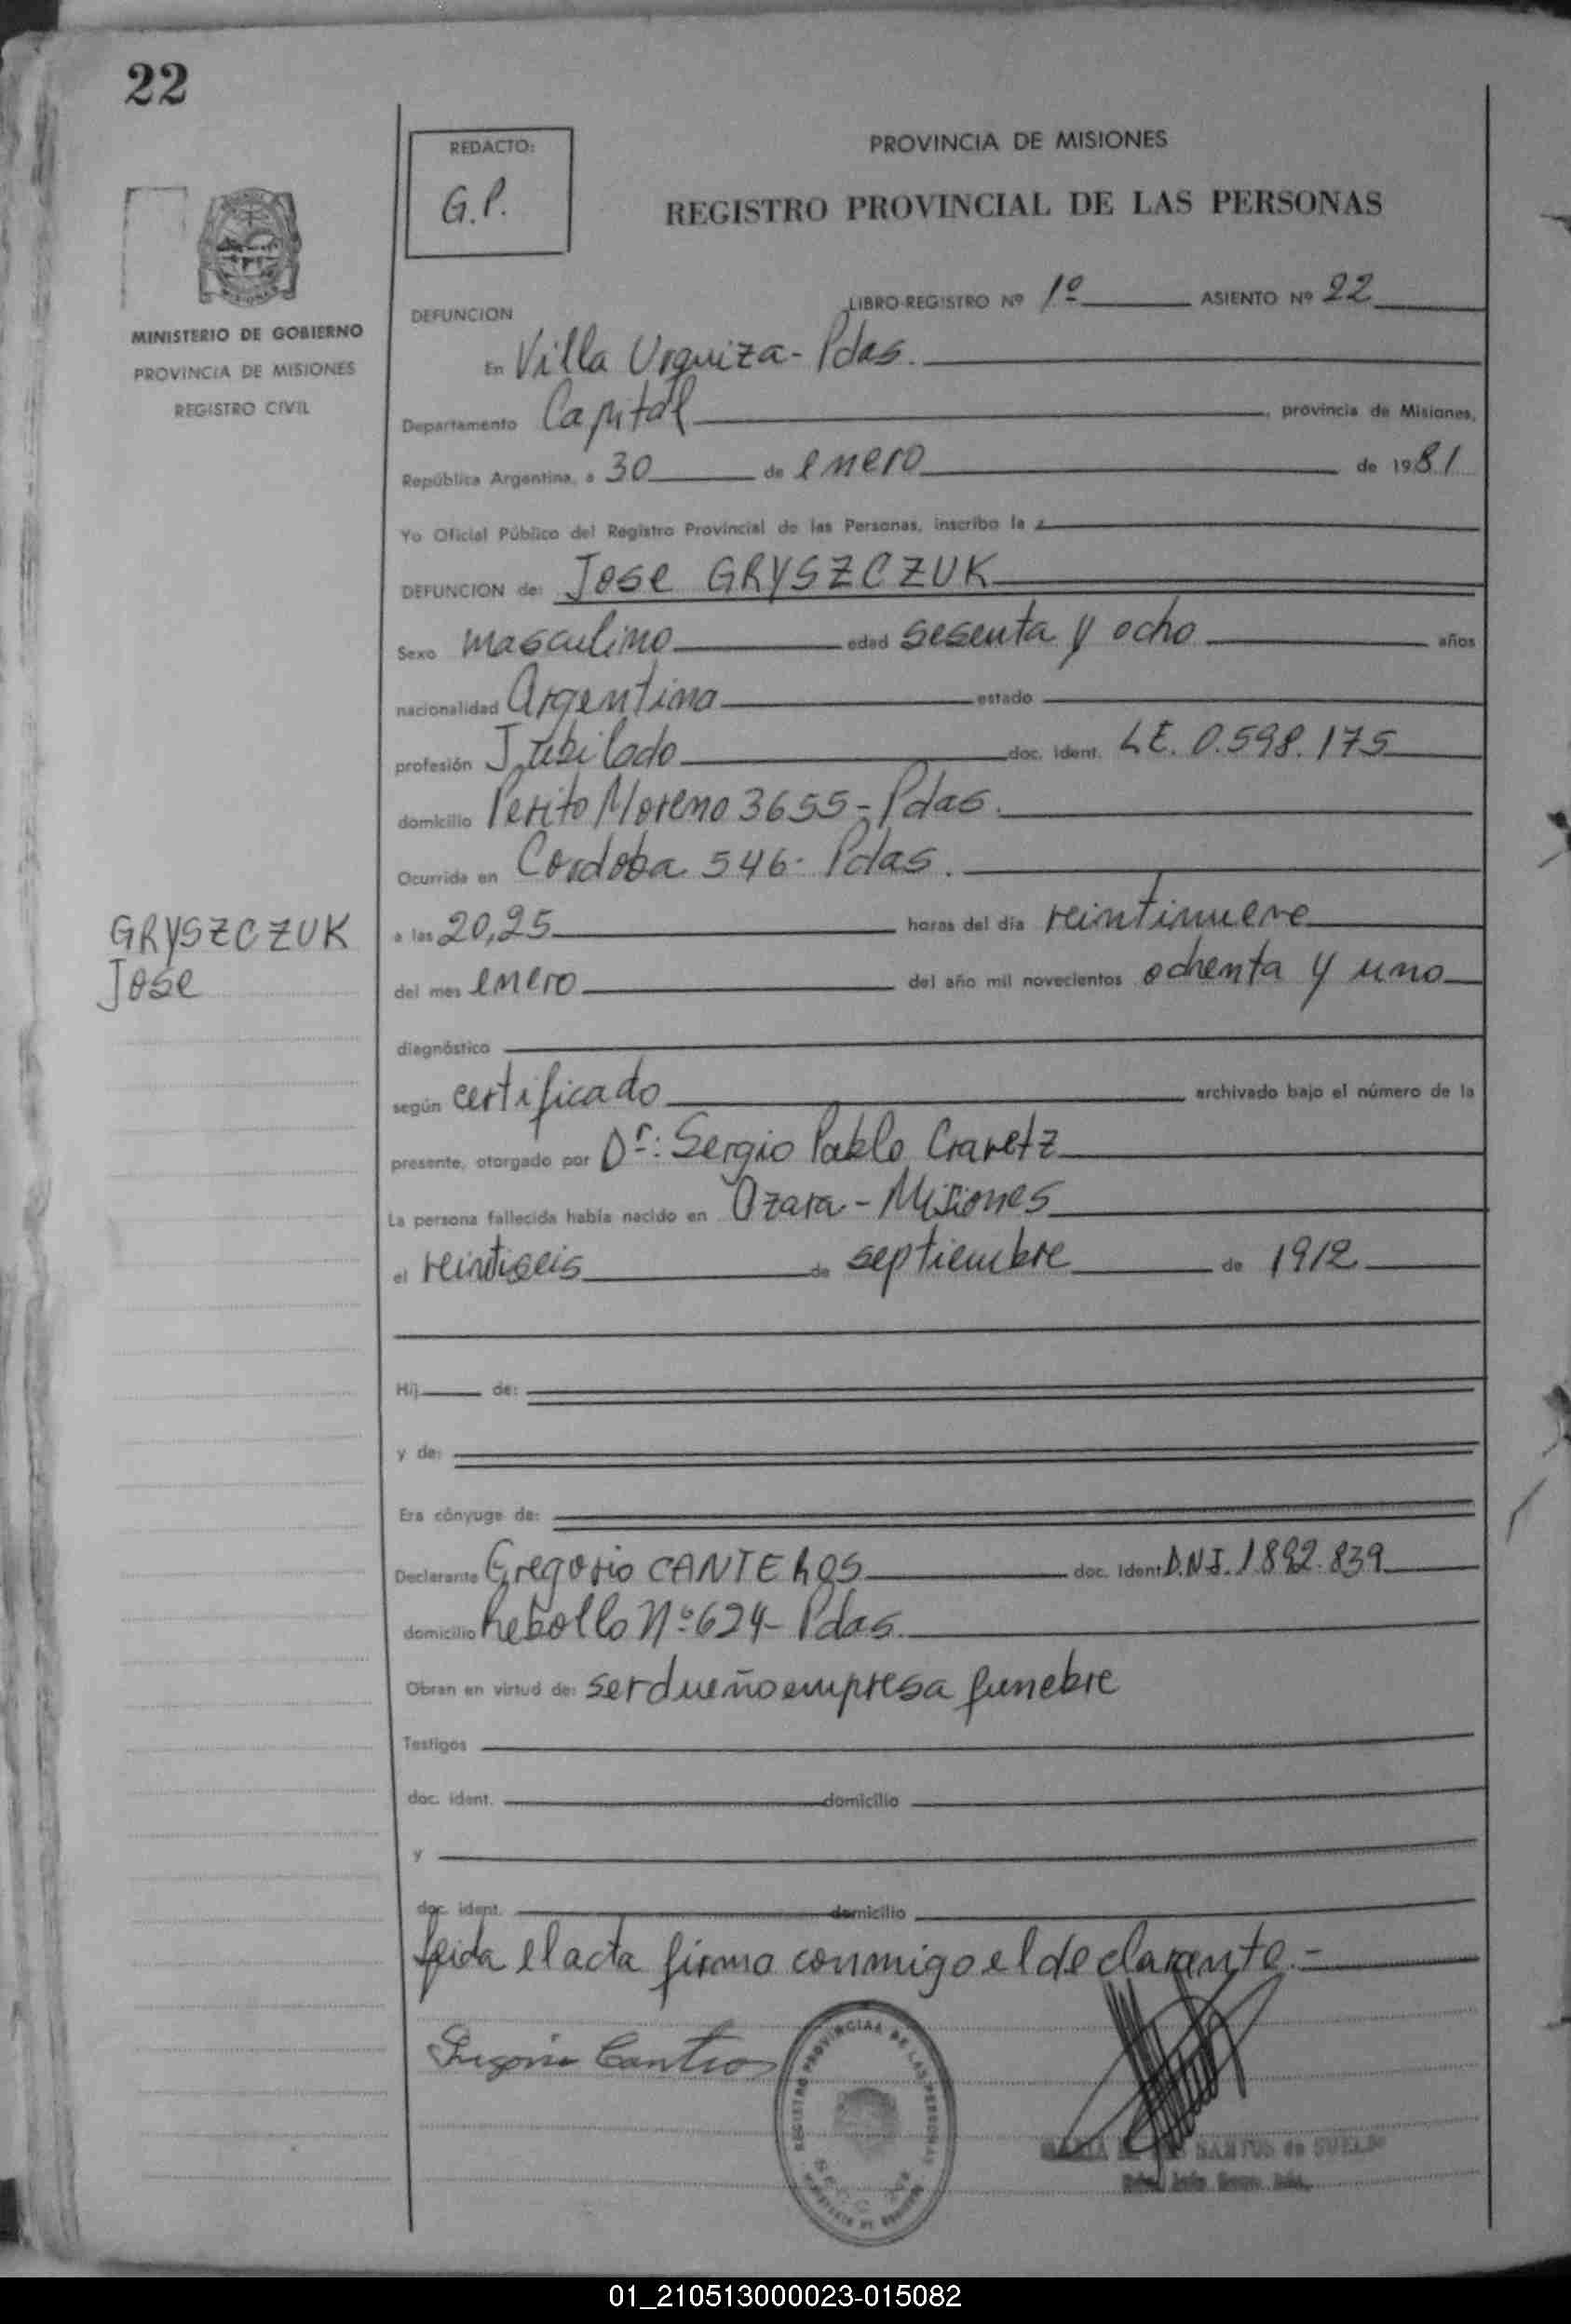 22
REDACTO:
G.P.
PROVINCIA DE MISIONES
REGISTRO PROVINCIAL DE LAS PERSONAS
MINISTERIO DE GOBIERNO
PROVINCIA DE MISIONES
REGISTRO CIVIL
DEFUNCION
LIBRO-REGISTRO Nº 1º ASIENTO Nº 22
En Villa Urquiza - Pdas.
Departamento Capital, provincia de Misiones,
República Argentina, a 30 de enero de 1981
Yo Oficial Público del Registro Provincial de las Personas, inscribo la
DEFUNCION de: Jose GRYSZCZUK
Sexo masculino edad sesenta y ocho años
nacionalidad Argentina estado
profesión Jubilado doc. ident. L.E. 0.598.175
domicilio Perito Moreno 3655 - Pdas.
Ocurrida en Cordoba 546 - Pdas.
GRYSZCZUK
Jose
a las 20,25 horas del día veintinueve
del mes enero del año mil novecientos ochenta y uno
diagnóstico
según certificado archivado bajo el número de la
presente, otorgado por Dr: Sergio Pablo
La persona fallecida había nacido en Azara - Misiones
el veintiseis de septiembre de 1912
Hij de:
y de:
Era cónyuge de:
Declarante Gregorio CANTEROS doc. Ident D.N.I. 1.892.839
domicilio Rebollo Nº 624 - Pdas.
Obran en virtud de: ser dueño empresa funebre
Testigos
doc. ident. domicilio
y
doc. ident. domicilio
Leida el acta firma conmigo el declarante.-
REGISTRO PROVINCIAL DE LAS PERSONAS
MARIA SANTOS de
01_210513000023-015082